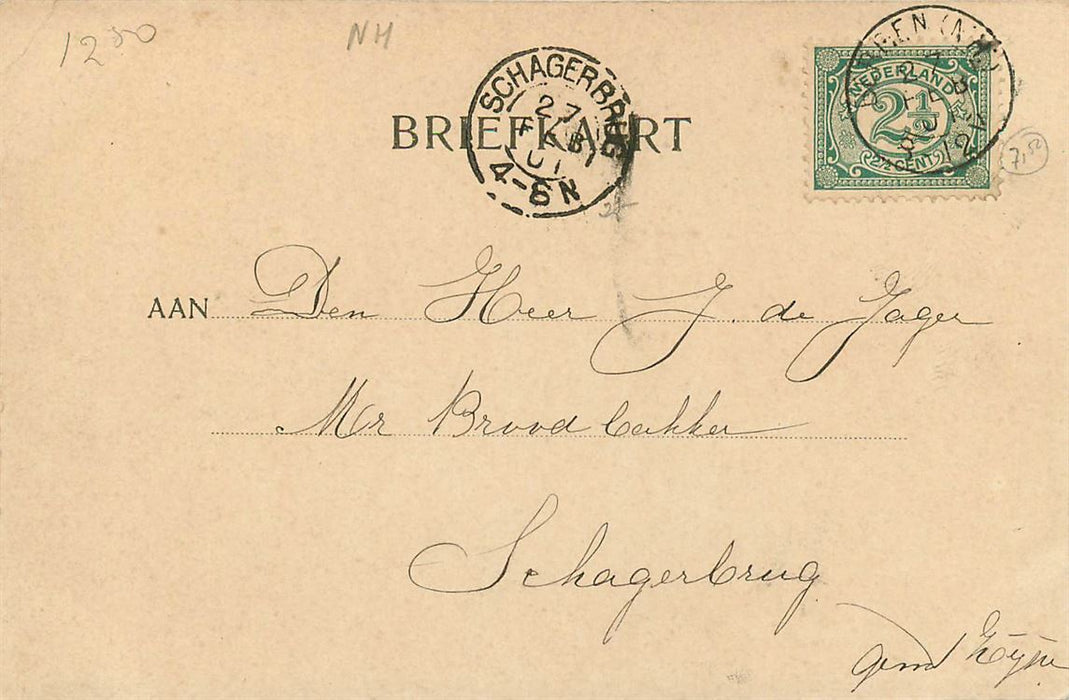 1250
NH
SCHAGERBRUG
27
FEB
01
4-8N
BRIEFKAART
(N.H.)
27
NEDERLAND
2½
2½ CENT
12
7,50
AAN Den Heer J. de Jager
Mr Broodbakker
Schagerbrug
gem Zijpe